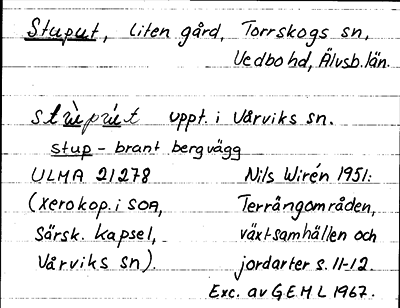 Stuput, liten gård, Torrskogs sn,
Vedbo hd, Älvsb. län.
stùpút uppt. i Vårviks sn.
stup - brant bergvägg
ULMA 21278 Nils Wirén 1951:
(Xerokop. i SOA, Terrängområden,
Särsk. kapsel, växtsamhällen och
Vårviks sn). jordarter s. 11-12.
Exc. av G.E.M L 1967.